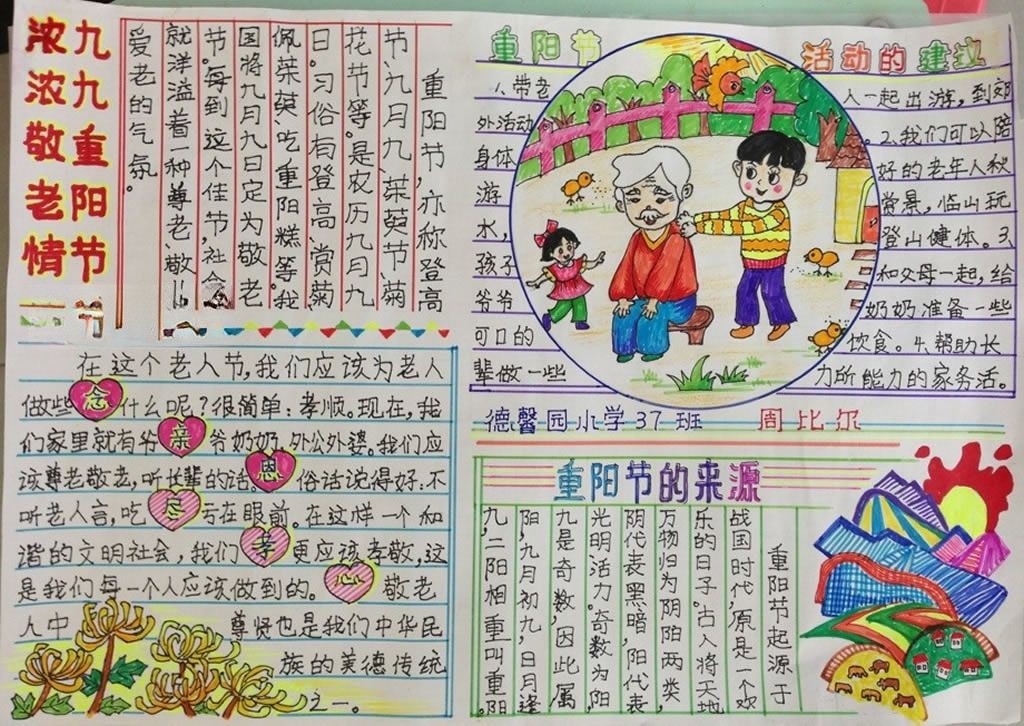 九九重阳节
浓浓敬老情
重阳节,亦称登高
节、九月九、茱萸节、菊
花节等。是农历九月九
日。习俗有登高、赏菊、
佩茱萸、吃重阳糕等。我
国将九月九日定为敬老
节。每到这个佳节,社会
就洋溢着一种尊老、敬
爱老的气氛。
重阳节 活动的建议
1、带老人一起出游,到郊
外活动 2、我们可以陪
身体好的老年人秋
游赏景,临山玩
水,登山健体。3、
孩子和父母一起,给
爷爷奶奶准备一些
可口的饮食。4、帮助长
辈做一些力所能力的家务活。
德馨园小学37班 周比尔
在这个老人节,我们应该为老人
做些念什么呢?很简单:孝顺。现在,我
们家里就有爷亲爷奶奶,外公外婆。我们应
该尊老敬老,听长辈的话。恩俗话说得好:不
听老人言,吃尽亏在眼前。在这样一个和
谐的文明社会,我们孝更应该孝敬,这
是我们每一个人应该做到的。心敬老
人中尊贤也是我们中华民
族的美德传统
之一。
重阳节的来源
重阳节起源于
战国时代,原是一个欢
乐的日子。古人将天地
万物归为阴阳两类,
阴代表黑暗,阳代表
光明活力。奇数为阳
九是奇数,因此属
阳,九月初九,日月逢
九,二阳相重叫重阳。